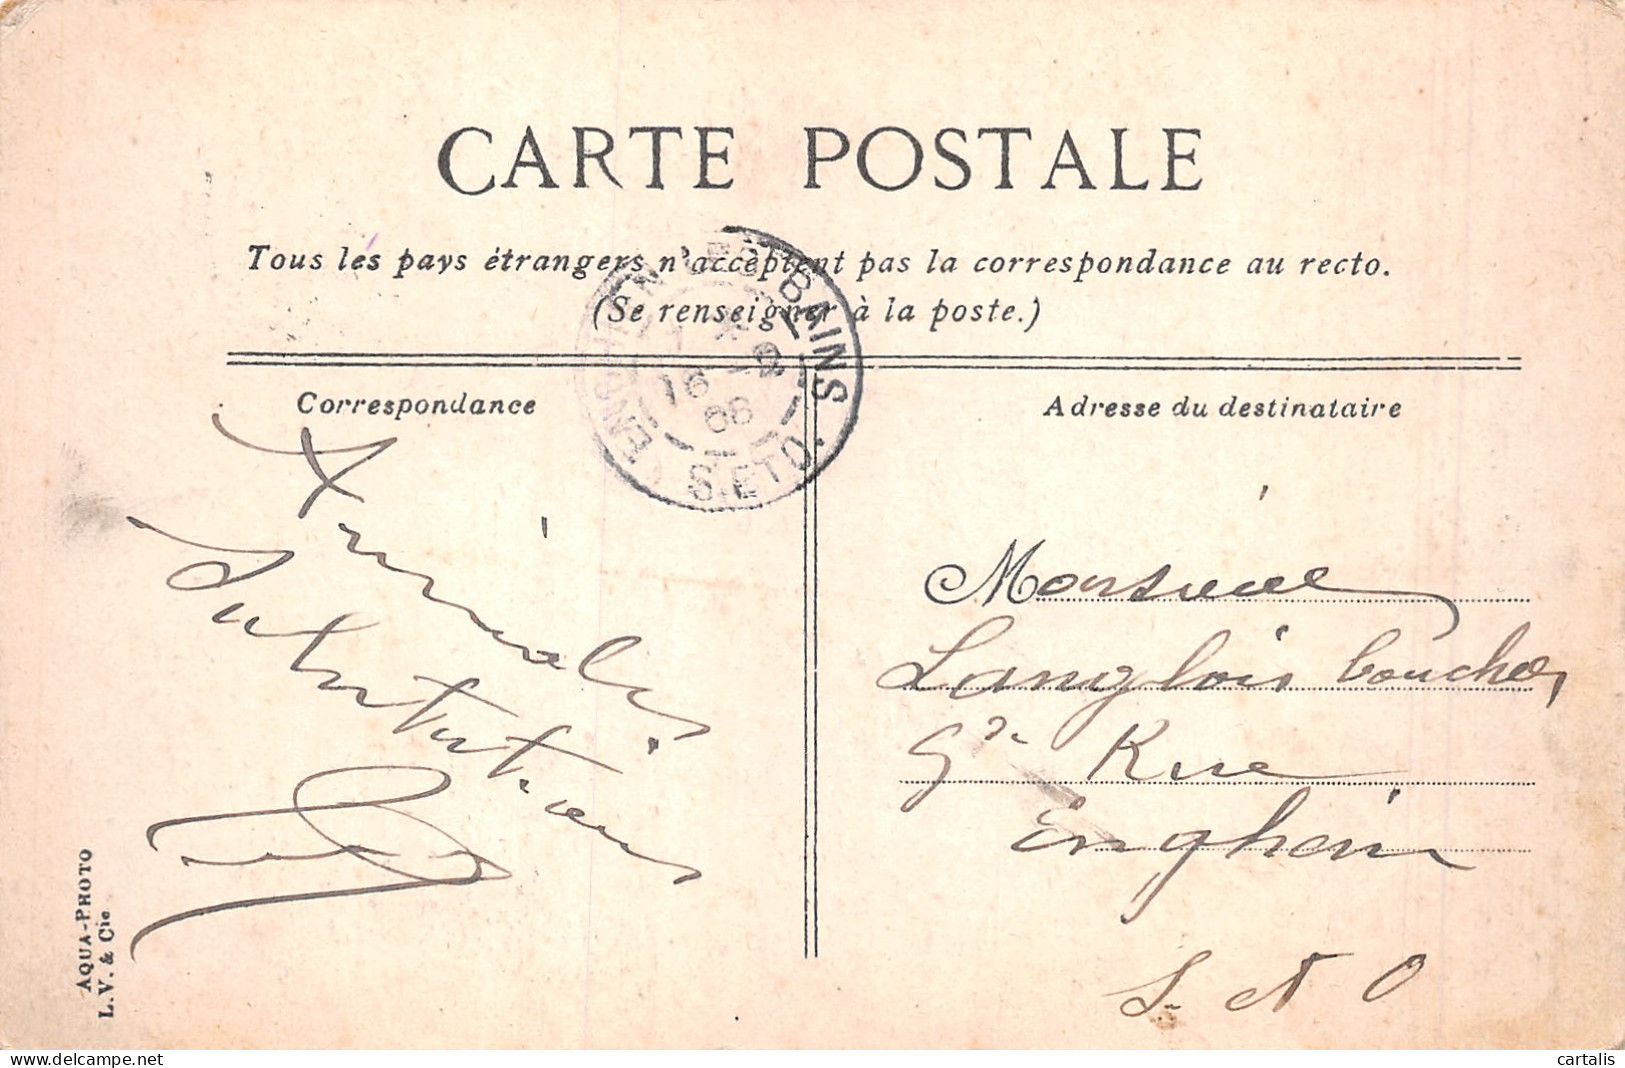 CARTE POSTALE
Tous les pays étrangers n'acceptent pas la correspondance au recto.
(Se renseigner à la poste.)
ENGHIEN LES BAINS
16
S. ET O.
Correspondance
Amicales
Salutations
Adresse du destinataire
Monsieur
Langlois boucher
Gde Rue
Enghein
S. et O
AQUA-PHOTO
L.V. & Cie
cartalis